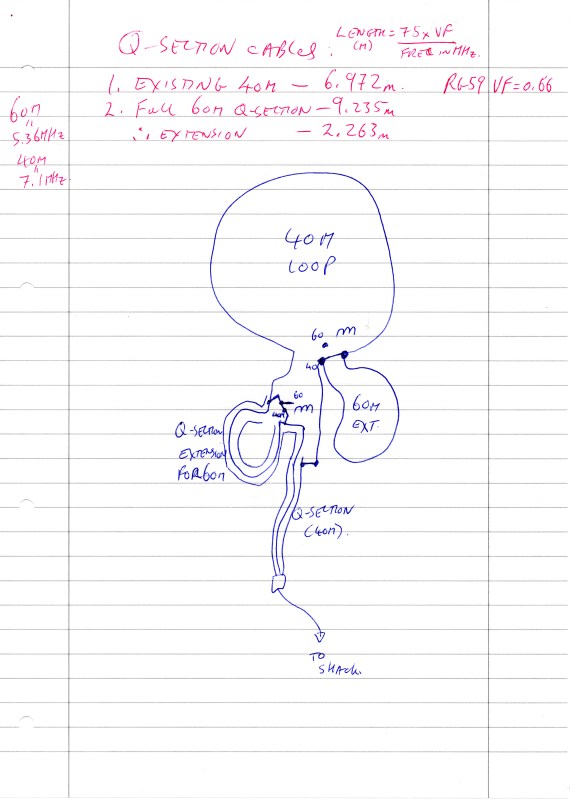 Q-SECTION CABLES. LENGTH = 75 x VF
(M) FREQ IN MHz.
1. EXISTING 40M — 6.972m. RG59 VF=0.66
2. Full 60M Q-SECTION — 9.235m
∴ EXTENSION — 2.263m
60M
"
5.36MHz
40M
=
7.1MHz
40M
LOOP
60 m
40
60
m
40m
60M
EXT.
Q-SECTION
EXTENSION
FOR 60M
Q-SECTION
(40M).
TO
SHACK.